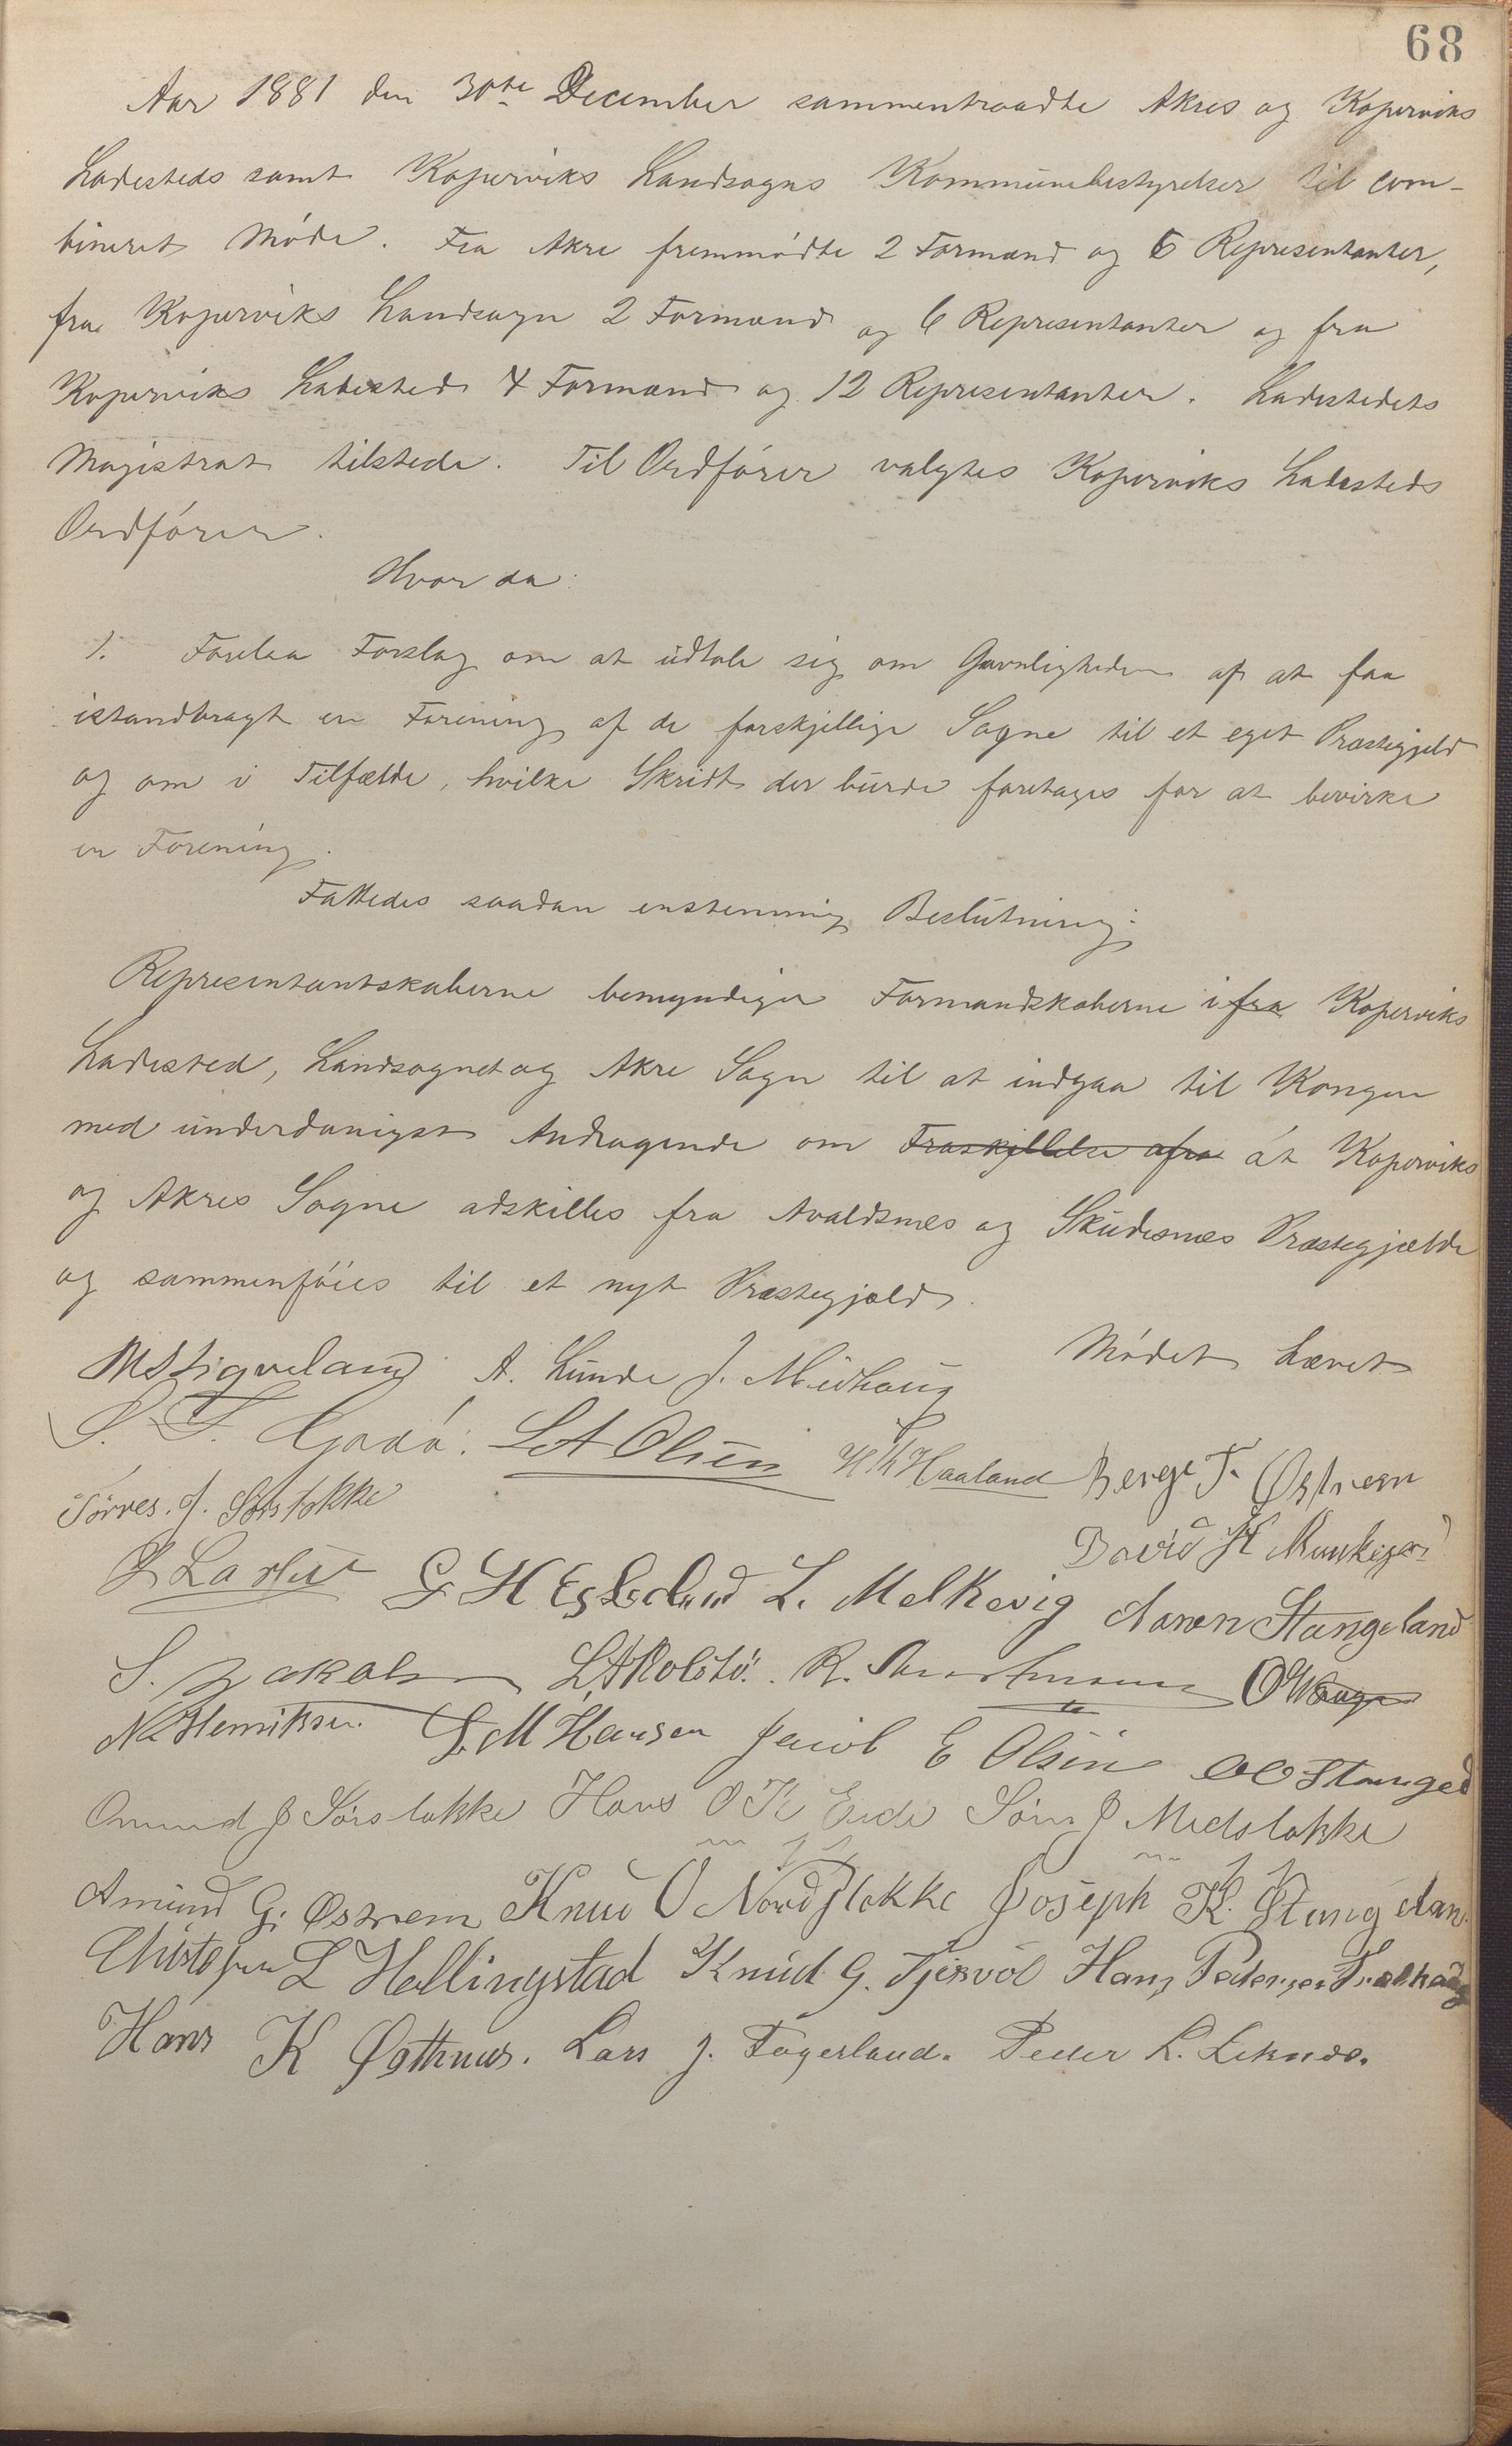 68
Aar 1881 den 30te December sammentraadte Akres og Koperviks
Ladesteds samt Koperviks Landsogns Kommunebestyrelser til com-
bineret Møde. Fra Akre fremmødte 2 Formænd og 6 Representanter,
fra Koperviks Landsogn 2 Formænd og 6 Representanter og fra
Koperviks Ladested 4 Formænd og 12 Representanter. Ladestedets
Magistrat tilstede. Til Ordfører valgtes Koperviks Ladesteds
Ordfører.
Hvor da:
1. Forelaa Forslag om at udtale sig om Gavnligheden af at faa
istandbragt en Forening af de forskjellige Sogne til et eget Præstegjeld
og om i Tilfælde, hvilke Skridt der burde foretages for at bevirke
en Forening.
Fattedes saadan enstemmig Beslutning:
Representantskaberne bemyndiger Formandskaberne i fra Koperviks
Ladested, Landsognet og Akre Sogn til at indgaa til Kongen
med underdanigst Andragende om Fraskjillelse afra at Koperviks
og Akres Sogne adskilles fra Avaldsnes og Skudesnæs Præstegjælde
og sammenføies til et nyt Præstegjæld.
Mødet hævet
A. Lunde J. Midhaug
L A Olsen H Th Haaland Berge T. Østrem
Tørres. J. Sørstokke
David H Munkejor
L. Melkevig Aanen Stangeland
S. Jakobsen L A Kolstø. R.
N Henriksen. L. M Hansen Jacob E Olsen O O Stangel
Omund J Sørstokke Hans O K Eide Søren J Medstokke
Amund G. Østrem Knud O Nordstokke Joseph K. Stangelan
Christopher L Hellingstad Knud G. Tjøsvol Hans Pedersen
Hans K Østhuus. Lars J. Fagerland. Peder L. Liknes.